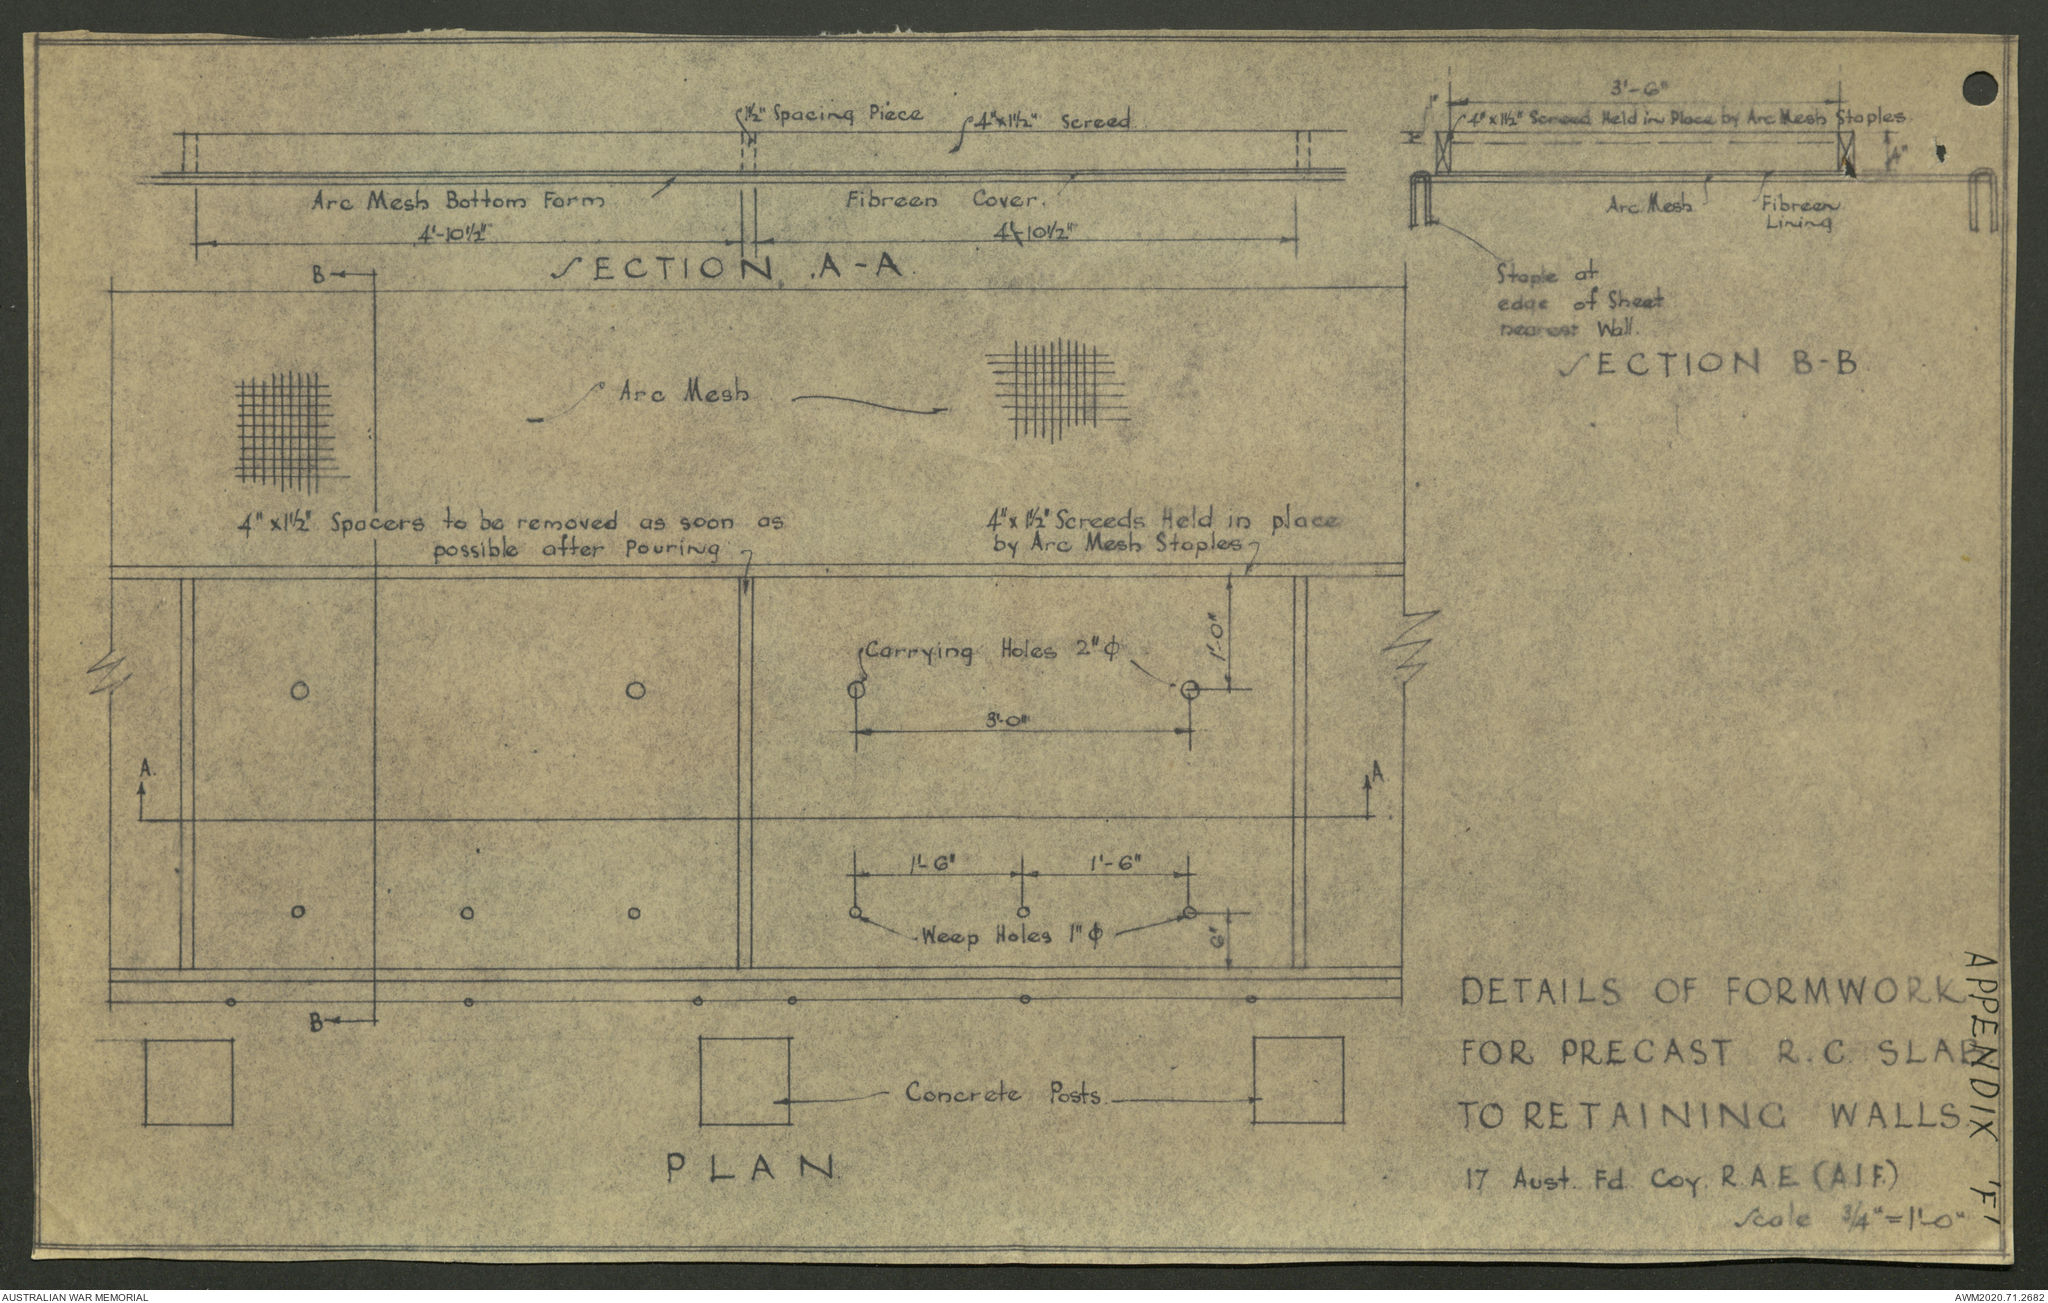 1½" Spacing Piece
4"x1½" Screed
Arc Mesh Bottom Form
Fibreen Cover.
4'-10½"
4'-10½"
SECTION A-A.
3'-6"
1"
4"x1½" Screed Held in Place by Arc Mesh Staples
4"
Arc Mesh
Fibreen
Lining
Staple at
edge of Sheet
nearest Wall.
SECTION B-B
B
Arc Mesh
4"x1½" Spacers to be removed as soon as
possible after Pouring
4"x1½" Screeds Held in place
by Arc Mesh Staples
Carrying Holes 2"φ
1'-0"
3'-0"
A.
A
1'-6"
1'-6"
Weep Holes 1"φ
6"
B
Concrete Posts.
PLAN.
DETAILS OF FORMWORK
FOR PRECAST R.C. SLAB
TO RETAINING WALLS
17 Aust. Fd. Coy. R.A.E (A.I.F.)
Scale ¾"=1'-0"
APPENDIX 'F'
AUSTRALIAN WAR MEMORIAL
AWM2020.71.2682